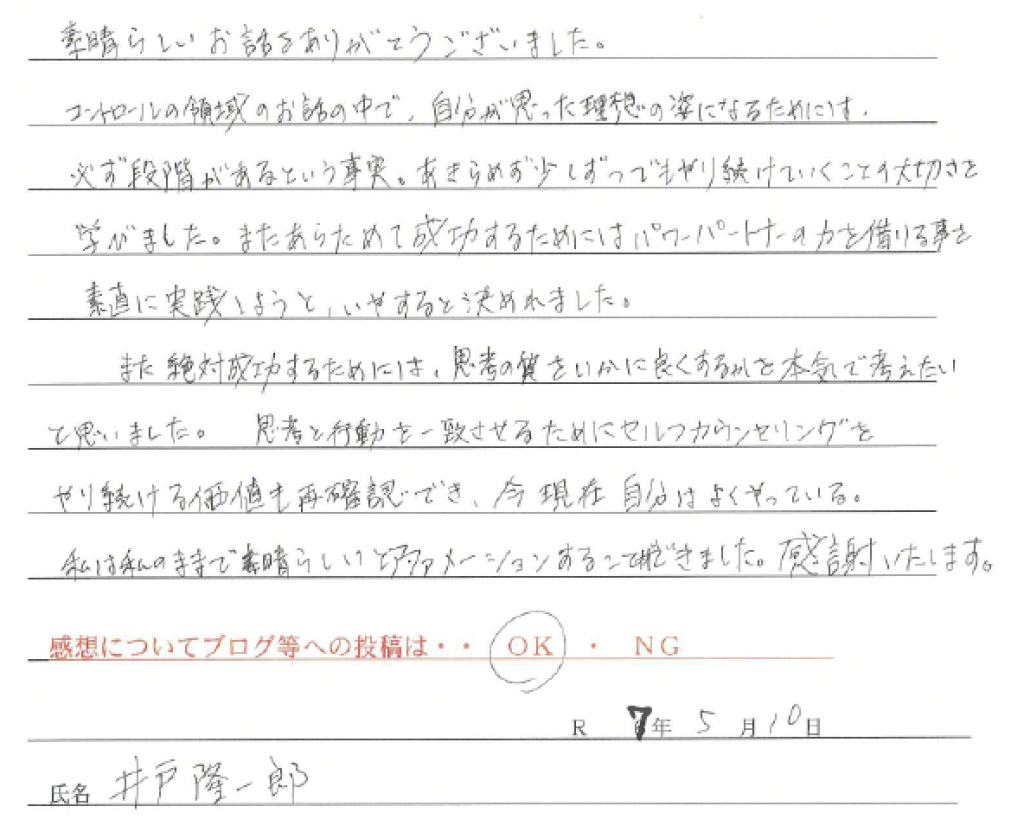 素晴らしいお話をありがとうございました。
コントロールの領域のお話の中で、自分が思った理想の姿になるためには、
必ず段階があるという事実。あきらめず少しずつでもやり続けていくことの大切さを
学びました。またあらためて成功するためにはパワーパートナーの力を借りる事を
素直に実践しようと、いやすると決めれました。
また絶対成功するためには、思考の質をいかに良くするかを本気で考えたい
と思いました。 思考と行動を一致させるためにセルフカウンセリングを
やり続ける価値も再確認でき、今現在自分はよくやっている。
私は私のままで素晴らしいとアファメーションすることができました。感謝いたします。
感想についてブログ等への投稿は・・ OK ・ NG
R 7年 5月10日
氏名 井戸隆一郎